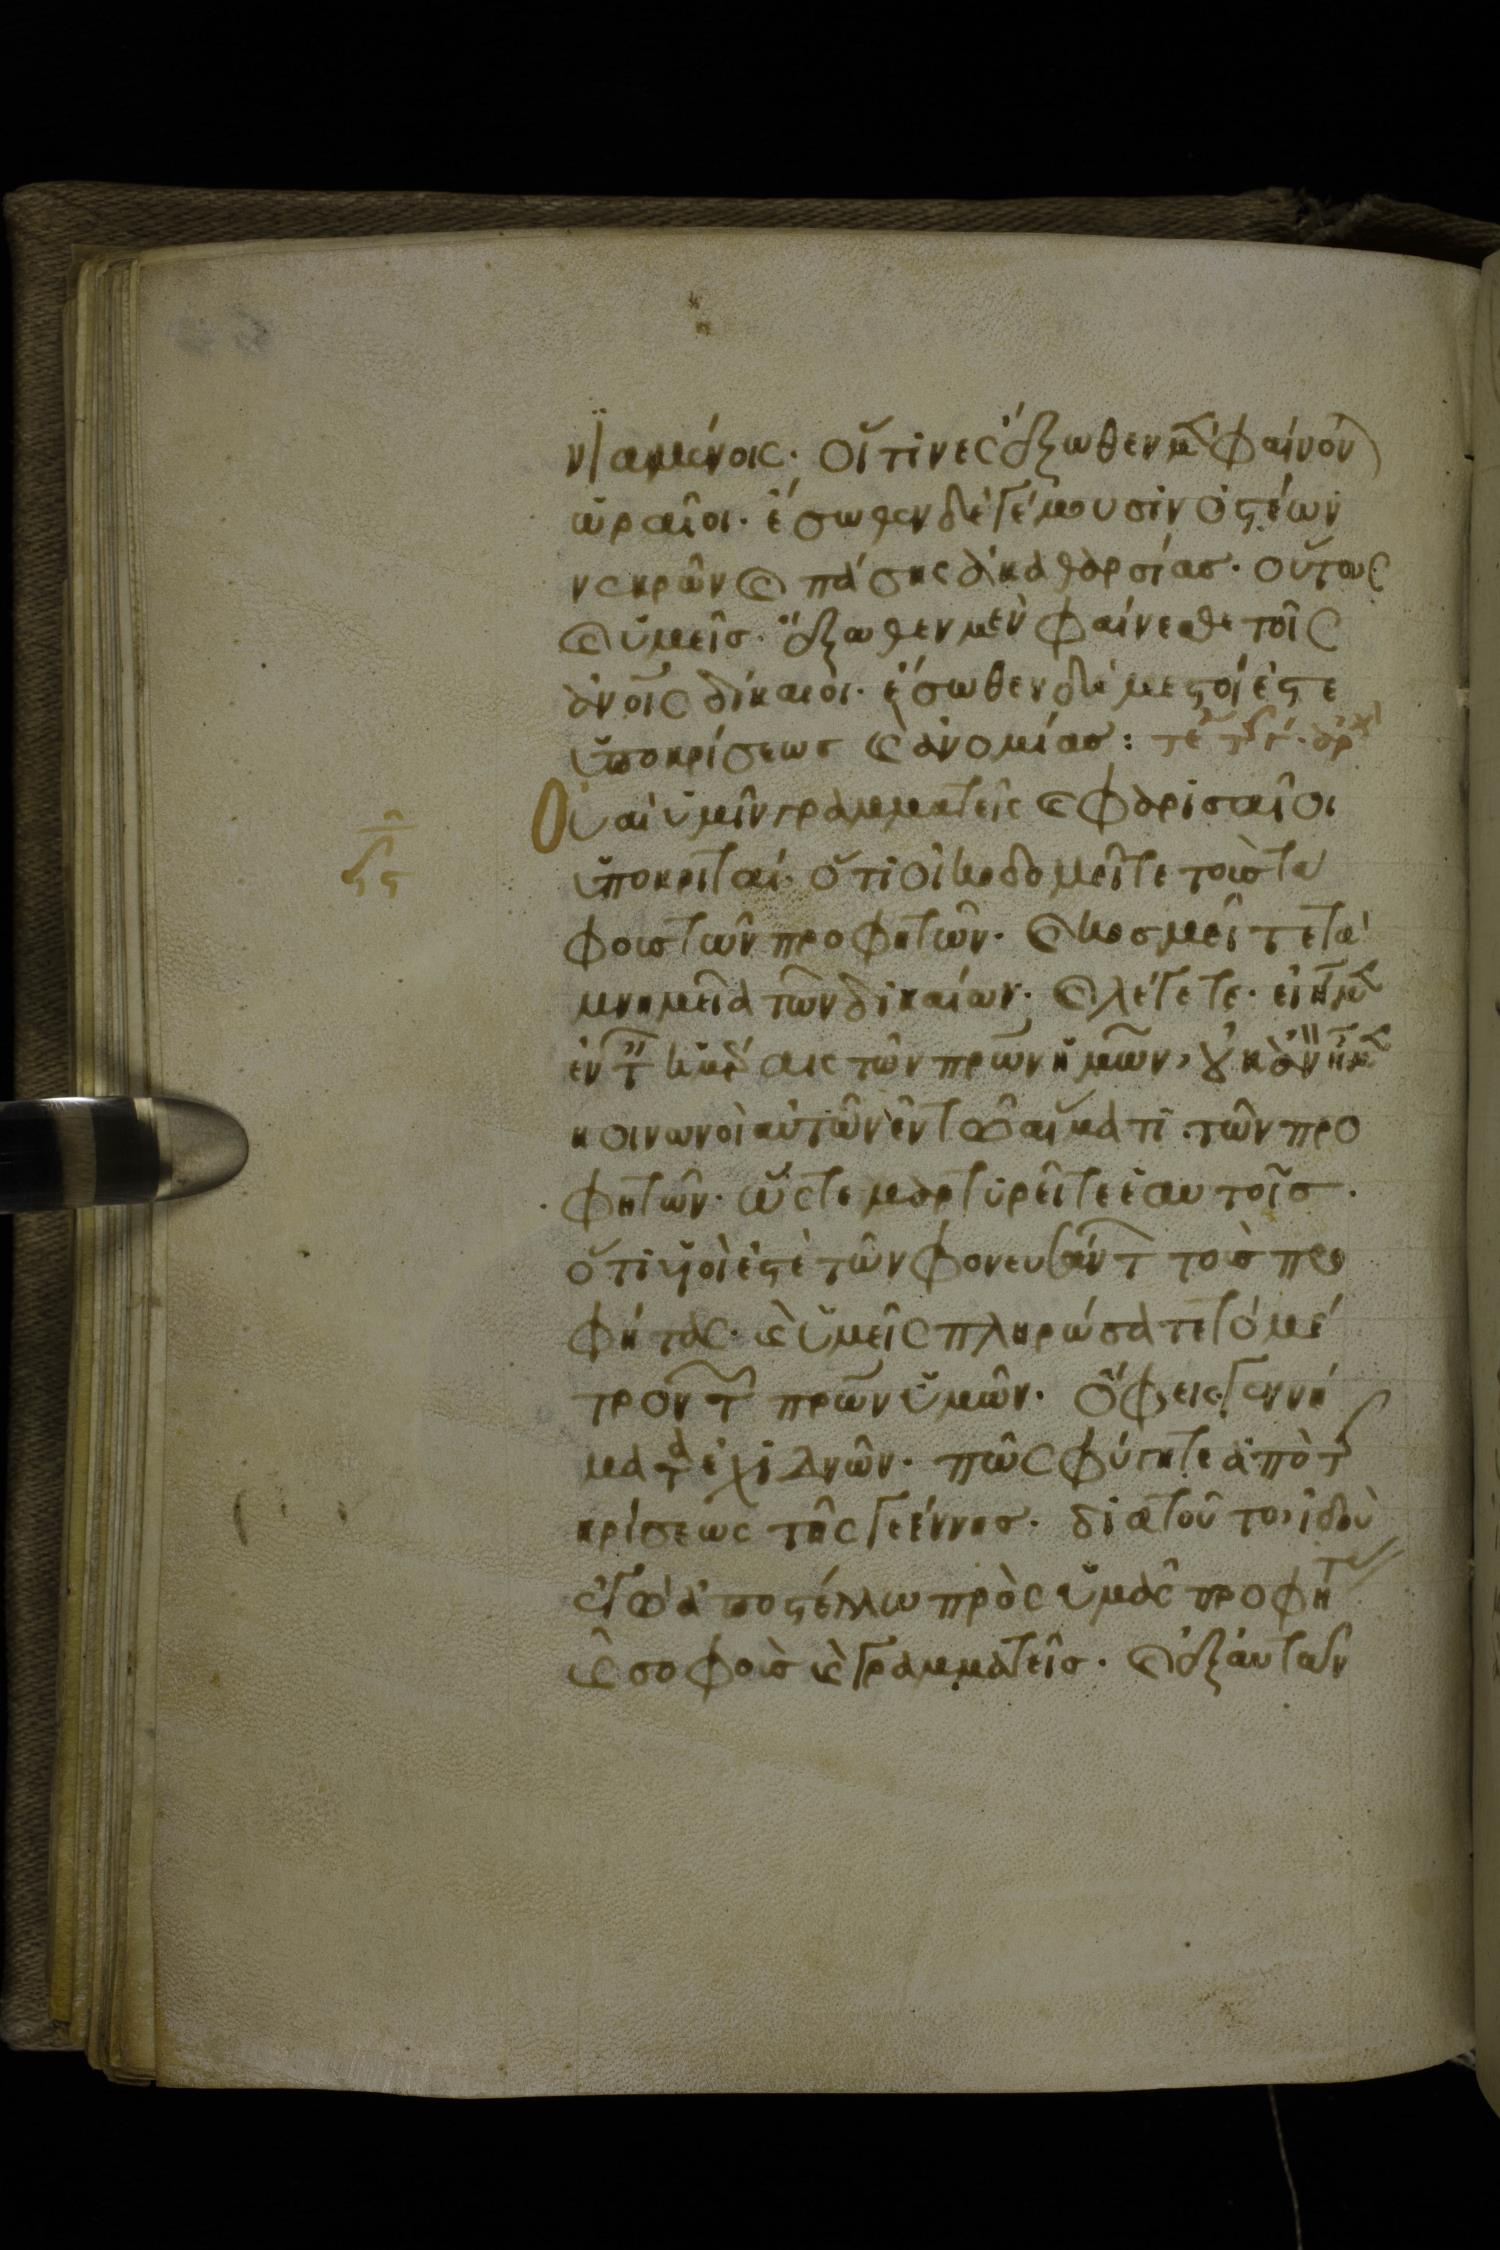 νϊαμένοις· οἵτινες ἔξωθεν μὲν φαίνον
ὡραῖοι· ἔσωθεν δὲ γέμουσιν ὀστέων
νεκρῶν καὶ πάσης ἀκαθαρσίας· οὕτως
καὶ ὑμεῖς· ἔξωθεν μὲν φαίνεσθε τοῖς
ἀνοῖς δίκαιοι· ἔσωθεν δὲ μεστοί ἐστε
ὑποκρίσεως καὶ ἀνομίας:
Οὐαὶ ὑμῖν γραμματεῖς καὶ φαρισαῖοι
ὑποκριταί· ὅτι οἰκοδομεῖτε τοὺς τά
φους τῶν προφητῶν· καὶ κοσμεῖτε τὰ
μνημεῖα τῶν δικαίων· καὶ λέγετε· εἰ ἤμεν
ἐν τ ἡμέραις τῶν πρων ἡμῶν, οὐκ ἂν ἦμεν
κοινωνοὶ αὐτῶν ἐν τῶ αἵματι τῶν προ
φητῶν· ὥστε μαρτυρεῖτε ἑαυτοῖς·
ὅτι υἱοί ἐστε τῶν φονευσάντ τοὺς προ
φήτας· καὶ ὑμεῖς πληρώσατε τὸ μέ
τρον τ πρων ὑμῶν· ὄφεις γεννή
ματα ἐχιδνῶν· πῶς φύγητε ἀπὸ τ
κρίσεως τῆς γεέννης· διατοῦτο, ἰδοὺ
ἐγὼ ἀποστέλλω πρὸς ὑμᾶς προφήτ
καὶ σοφοὺς καὶ γραμματεῖς· καὶ ἐξ αὐτῶν